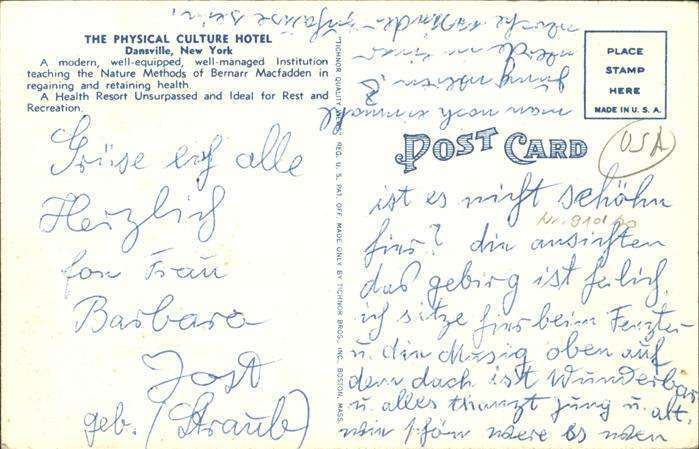 THE PHYSICAL CULTURE HOTEL
Dansville, New York
A modern, well-equipped, well-managed Institution
teaching the Nature Methods of Bernarr Macfadden in
regaining and retaining health.
A Health Resort Unsurpassed and Ideal for Rest and
Recreation.
Grüse euch alle
Herzlich
fon Frau
Barbara
Jost
geb. (Straub)
TICHNOR QUALITY VIEWS, REG. U. S. PAT. OFF. MADE ONLY BY TICHNOR BROS., INC., BOSTON, MASS.
PLACE
STAMP
HERE
MADE IN U. S. A.
POST CARD
USA
ist es nicht schöhn
hier? die ansichten
das gebirg ist
ich sitze hier beim Fenster
u. die Musig oben auf
dem dach ist Wunderbar
u. alles tannzt jung u. alt.
wie schön were es wen
man noch einmahl
jung